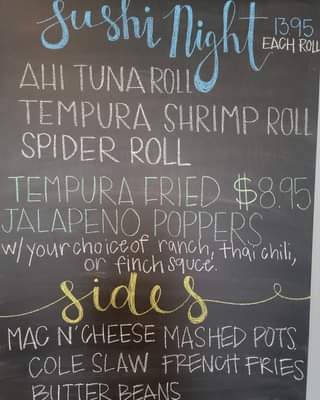 Sushi Night 13.95
EACH ROLL
AHI TUNA ROLL
TEMPURA SHRIMP ROLL
SPIDER ROLL
TEMPURA FRIED $8.95
JALAPENO POPPERS
w/your choice of ranch, thai chili,
or finch sauce.
sides
MAC N' CHEESE MASHED POTS
COLE SLAW FRENCH FRIES
BUTTER BEANS